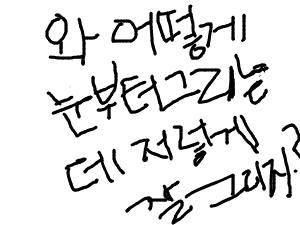 와 어떻게
눈부터그리는
데 저렇게
잘 그리지?